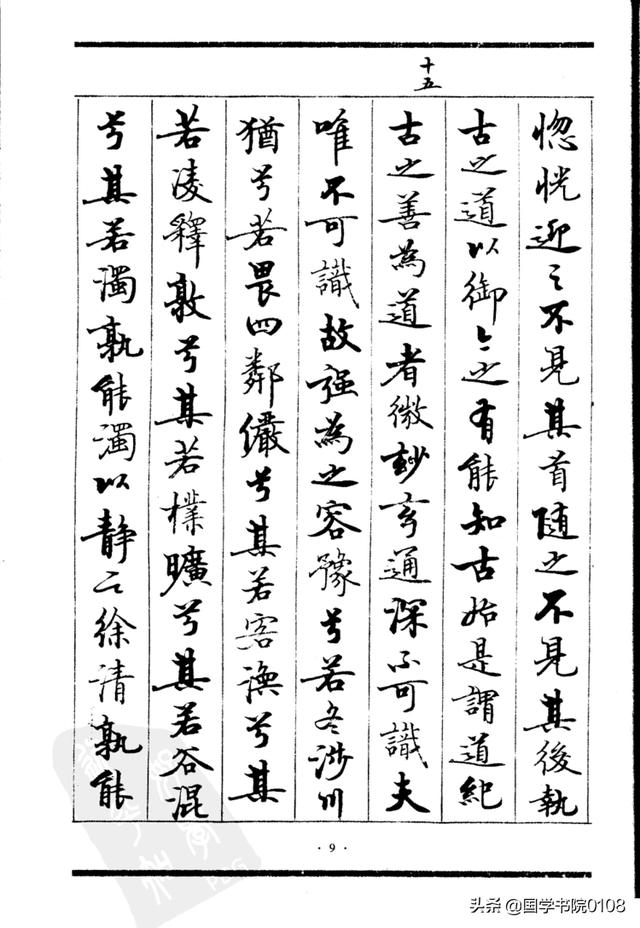 十五
惚恍迎之不見其首隨之不見其後執
古之道以御今之有能知古始是謂道紀
古之善為道者微妙玄通深不可識夫
唯不可識故强為之容豫兮若冬涉川
猶兮若畏四鄰儼兮其若客渙兮其
若凌釋敦兮其若樸曠兮其若谷混
兮其若濁孰能濁以静之徐清孰能
·9·
头条@国学书院0108